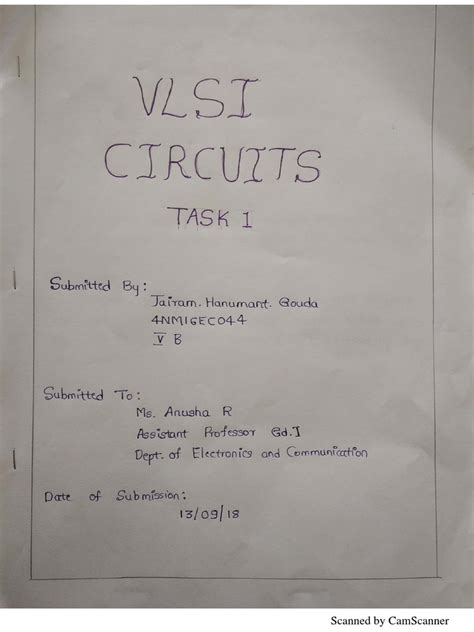 VLSI
CIRCUITS
TASK 1
Submitted By :
Jairam. Hanumant. Gouda
4NM16EC044
V B
Submitted To :
Ms. Anusha R
Assistant Professor Gd.I
Dept. of Electronics and Communication
Date of Submission :
13/09/18
Scanned by CamScanner